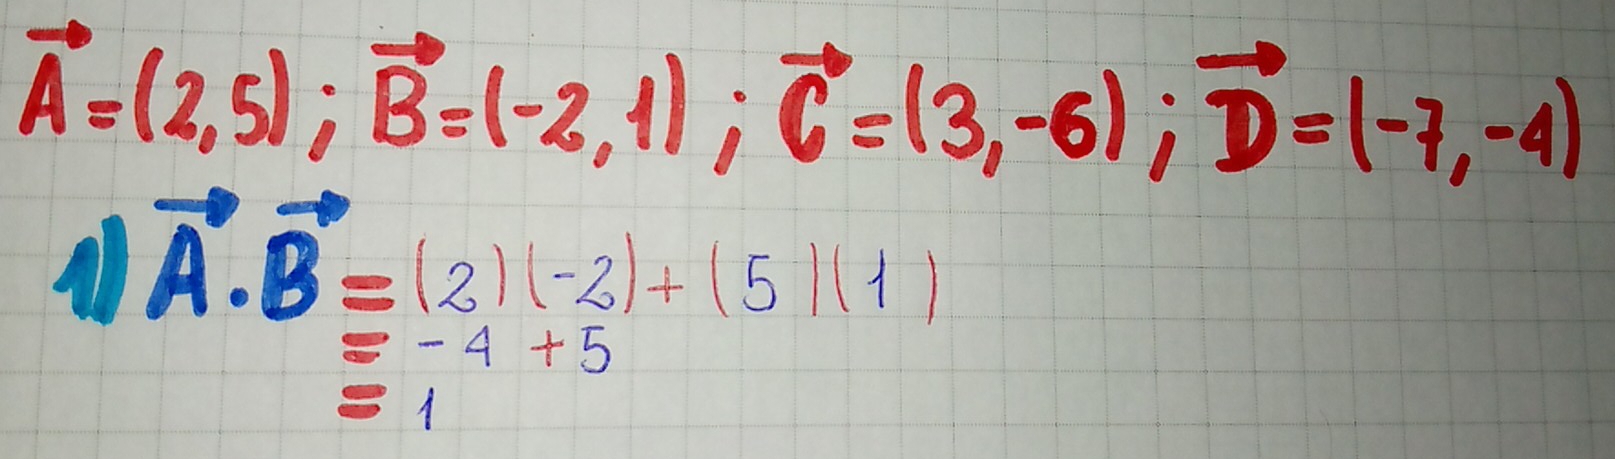 A⃗=(2,5); B⃗=(-2,1); C⃗=(3,-6); D⃗=(-7,-4)
1) A⃗.B⃗ = (2)(-2)+(5)(1)
= -4 +5
= 1